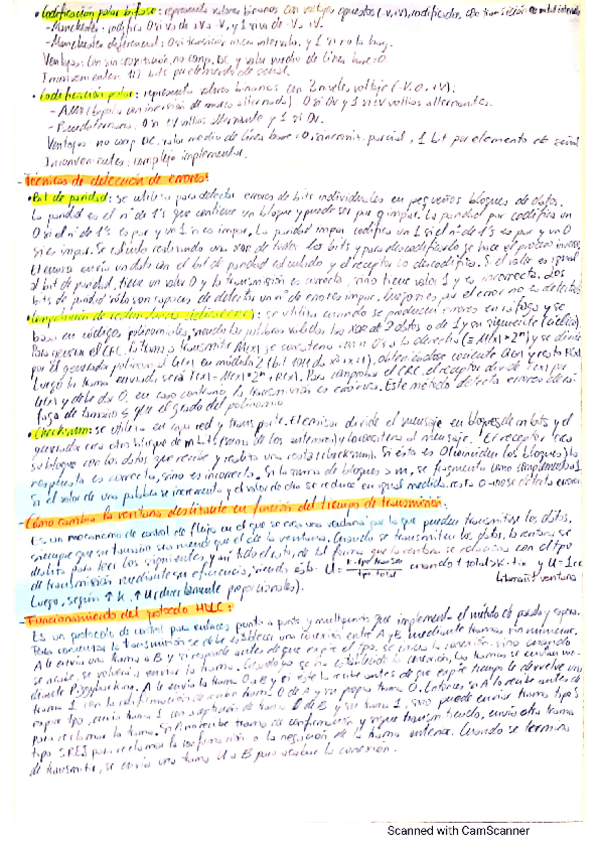 • Codificación polar bifase: representa valores binarios con voltajes opuestos (-V,+V), codificados
- Manchester: codifica 0 si va de +V a -V, y 1 si va de -V a +V.
- Manchester diferencial: 0 si transición inicio intervalo, y 1 si no la hay.
Ventajas: sincronización, no comp. DC, y valor medio de línea base = 0.
Inconvenientes: 1/2 bits por elemento de señal.
• Codificación : representa valores binarios con 3 niveles voltaje (-V, 0, +V):
- AMI (bipolar con inversión de marca alternada) 0 si 0V y 1 si V voltios alternantes.
- Pseudoternaria, 0 si V voltios alternante y 1 si 0V.
Ventajas: no comp DC, valor medio de línea base = 0, sincroniz. parcial, 1 bit por elemento de señal
Inconvenientes: complejo implementar.
- Técnicas de detección de errores:
• Bit de paridad: se utiliza para detectar errores de bits individuales en pequeños bloques de datos.
La paridad es el nº de 1's que contiene un bloque y puede ser par o impar. La paridad par codifica un
0 si el nº de 1's es par y un 1 si es impar. La paridad impar codifica un 1 si el nº de 1's es par y un 0
si es impar. Se calcula realizando una XOR de todos los bits y para descodificarlo se hace el proceso inverso.
El emisor envía un dato con el bit de paridad calculado y el receptor lo descodifica. Si el valor es igual
al bit de paridad, tiene un valor 0 y la transmisión es correcta, sino tiene valor 1 y es incorrecta. Los
bits de paridad sólo son capaces de detectar un nº de errores impar, si es par el error no es detectado
• Comprobación de redundancia cíclica (CRC): se utiliza cuando se producen errores en ráfaga y se
basa en códigos polinomiales, siendo las palabras válidas las XOR de 2 datos o de 1 y su siguiente (cíclico).
Para generar el CRC, la trama a transmitir M(x) se aumenta con n 0's a la derecha (= M(x) * 2^n) y se divide
por el generador polinomial G(x) en módulo 2 , obteniéndose cociente Q(x) y resto R(x).
Luego la trama enviada será T(x) = M(x) * 2^n + R(x). Para comprobar el CRC, el receptor divide T(x) por
G(x) y debe dar 0, en caso contrario la transmisión es errónea. Este método detecta errores de rá-
faga de tamaño ≤ que el grado del polinomio
• Checksum: se utiliza en capa red y transporte. El emisor divide el mensaje en bloques de m bits y el
generador crea otro bloque de m bits (suma de los anteriores) y lo concatena al mensaje. El receptor crea
su bloque con los datos que recibe y realiza una resta (checksum). Si ésta es 0 (coinciden los bloques) la
respuesta es correcta, sino es incorrecta. Si la suma de bloques > m, se fragmenta como complemento a 1.
Si el valor de una palabra se incrementa y el valor de otra se reduce en igual medida, resta 0 -> no se detecta error.
- Cómo cambia la ventana deslizante en función del tiempo de transmisión.
Es un mecanismo de control de flujo en el que se crea una ventana por la que pueden transmitirse los datos,
siempre que su tamaño sea menor que el de la ventana. Cuando se transmiten los datos, la ventana se
desliza para leer los siguientes, y así todo el rato, de tal forma que la ventana se relaciona con el tpo
de transmisión mediante su eficiencia, siendo ésta: U = cuando t total > K · tix y U = 1
Luego, según ↑ K, ↑ U (directamente proporcionales).
- Funcionamiento del protocolo HDLC:
Es un protocolo de control para enlaces punto a punto y multipunto que implementa el método de parada y espera.
Para comenzar la transmisión se debe establecer una conexión entre A y B mediante tramas sin numerar.
A le envía una trama a B y si responde antes de que expire el tpo. se inicia la conexión, sino cuando
se acabe, se volverá a enviar la trama. Cuando ya se ha establecido la conexión, las tramas se envían me-
diante Piggybacking. A le envía la trama 0 a B y si éste la recibe antes de que expire tiempo le devuelve una
trama 1 con la confirmación de recibir trama 0 de A y su propia trama 0. Entonces si A lo recibe antes de
expirar tpo, envía trama 1 con aceptación de trama 0 de B y su trama 1, sino puede enviar trama tipo S
para reclamar la trama. Si A no recibe trama de confirmación y sigue transmitiendo, envía otra trama
tipo SREJ para reclamar la confirmación o la negación de la trama anterior. Cuando se termina
de transmitir, se envía una trama U a B para acabar la conexión.
Scanned with CamScanner